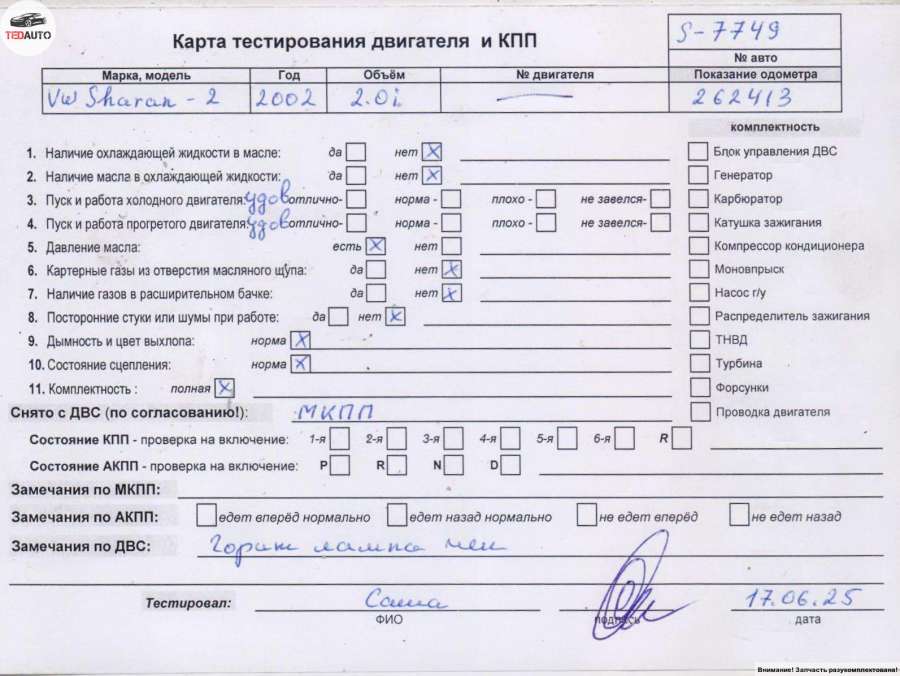 TEDAUTO
Карта тестирования двигателя и КПП
S-7749
№ авто
Марка, модель Год Объём № двигателя Показание одометра
VW Sharan - 2 2002 2.0i — 262413
комплектность
1. Наличие охлаждающей жидкости в масле: да нет X Блок управления ДВС
2. Наличие масла в охлаждающей жидкости: да нет X Генератор
3. Пуск и работа холодного двигателя: удов отлично- норма - плохо - не завелся- Карбюратор
4. Пуск и работа прогретого двигателя: удов отлично- норма - плохо - не завелся- Катушка зажигания
5. Давление масла: есть X нет Компрессор кондиционера
6. Картерные газы из отверстия масляного щупа: да нет X Моновпрыск
7. Наличие газов в расширительном бачке: да нет X Насос г/у
8. Посторонние стуки или шумы при работе: да нет X Распределитель зажигания
9. Дымность и цвет выхлопа: норма X ТНВД
10. Состояние сцепления: норма X Турбина
11. Комплектность : полная X Форсунки
Снято с ДВС (по согласованию!): МКПП Проводка двигателя
Состояние КПП - проверка на включение: 1-я 2-я 3-я 4-я 5-я 6-я R
Состояние АКПП - проверка на включение: P R N D
Замечания по МКПП:
Замечания по АКПП: едет вперёд нормально едет назад нормально не едет вперёд не едет назад
Замечания по ДВС: Горит лампа чек
Тестировал: Саша 17.06.25
ФИО подпись дата
Внимание! Запчасть разукомплектована!